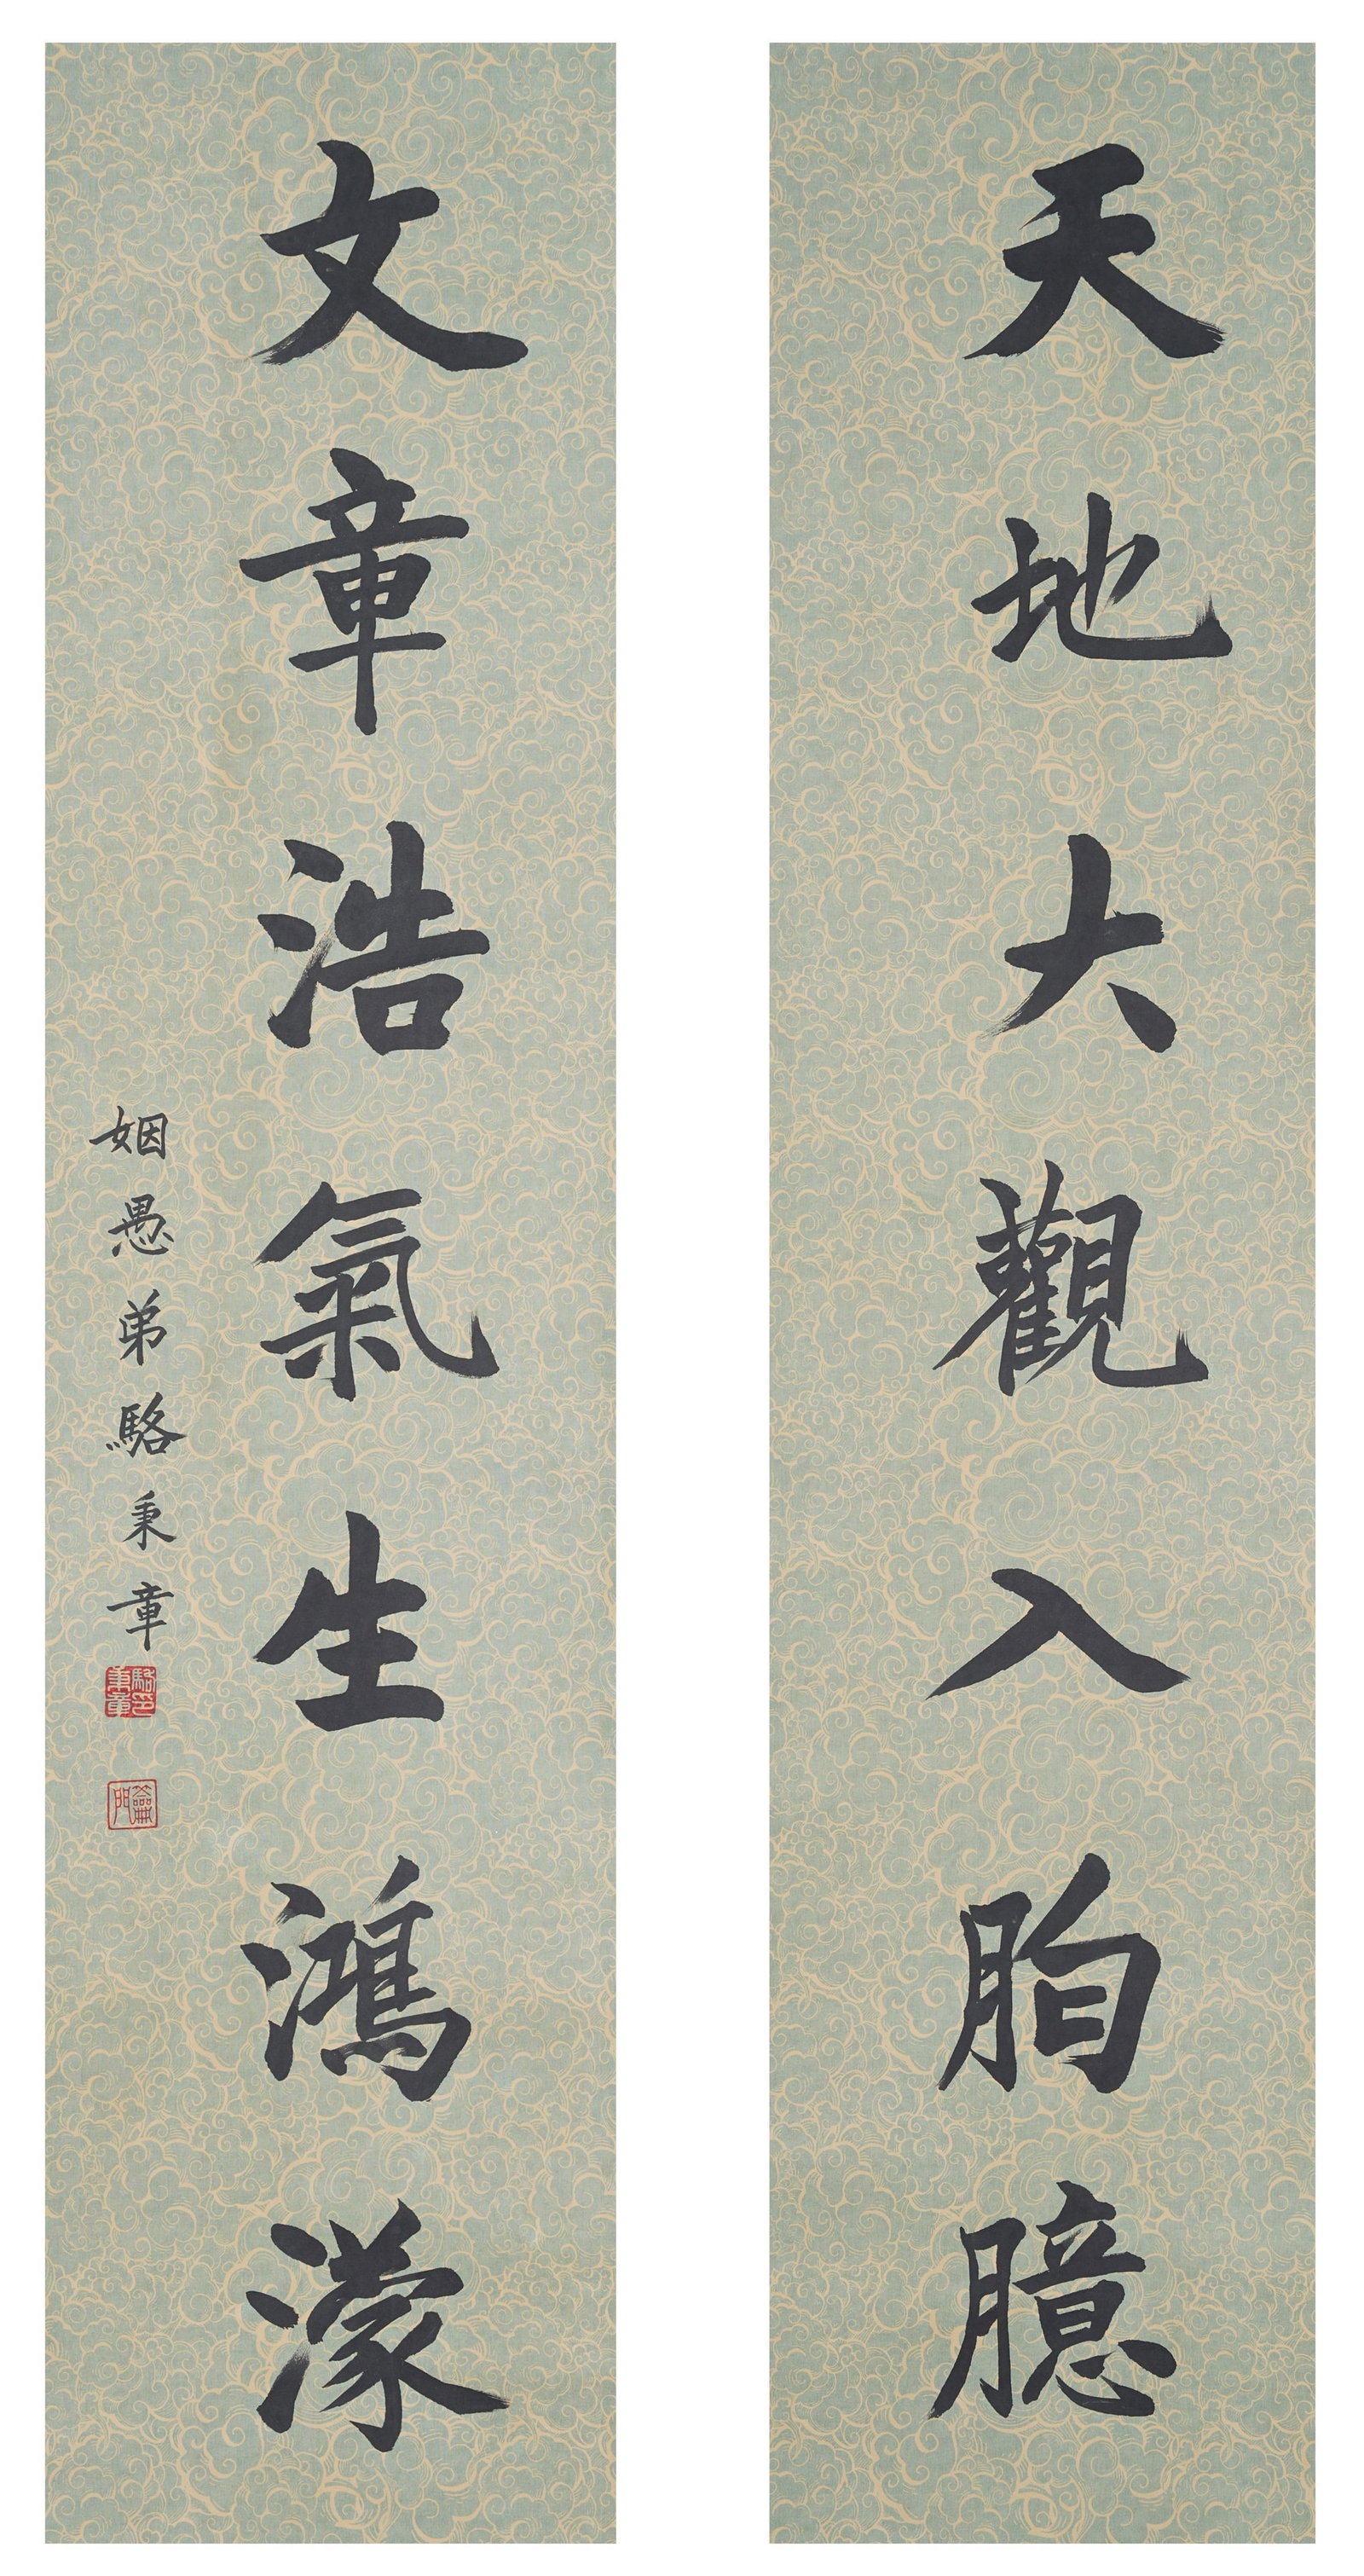 天地大觀入胷臆
文章浩氣生鴻濛
姻愚弟駱秉章
駱印秉章
籥門